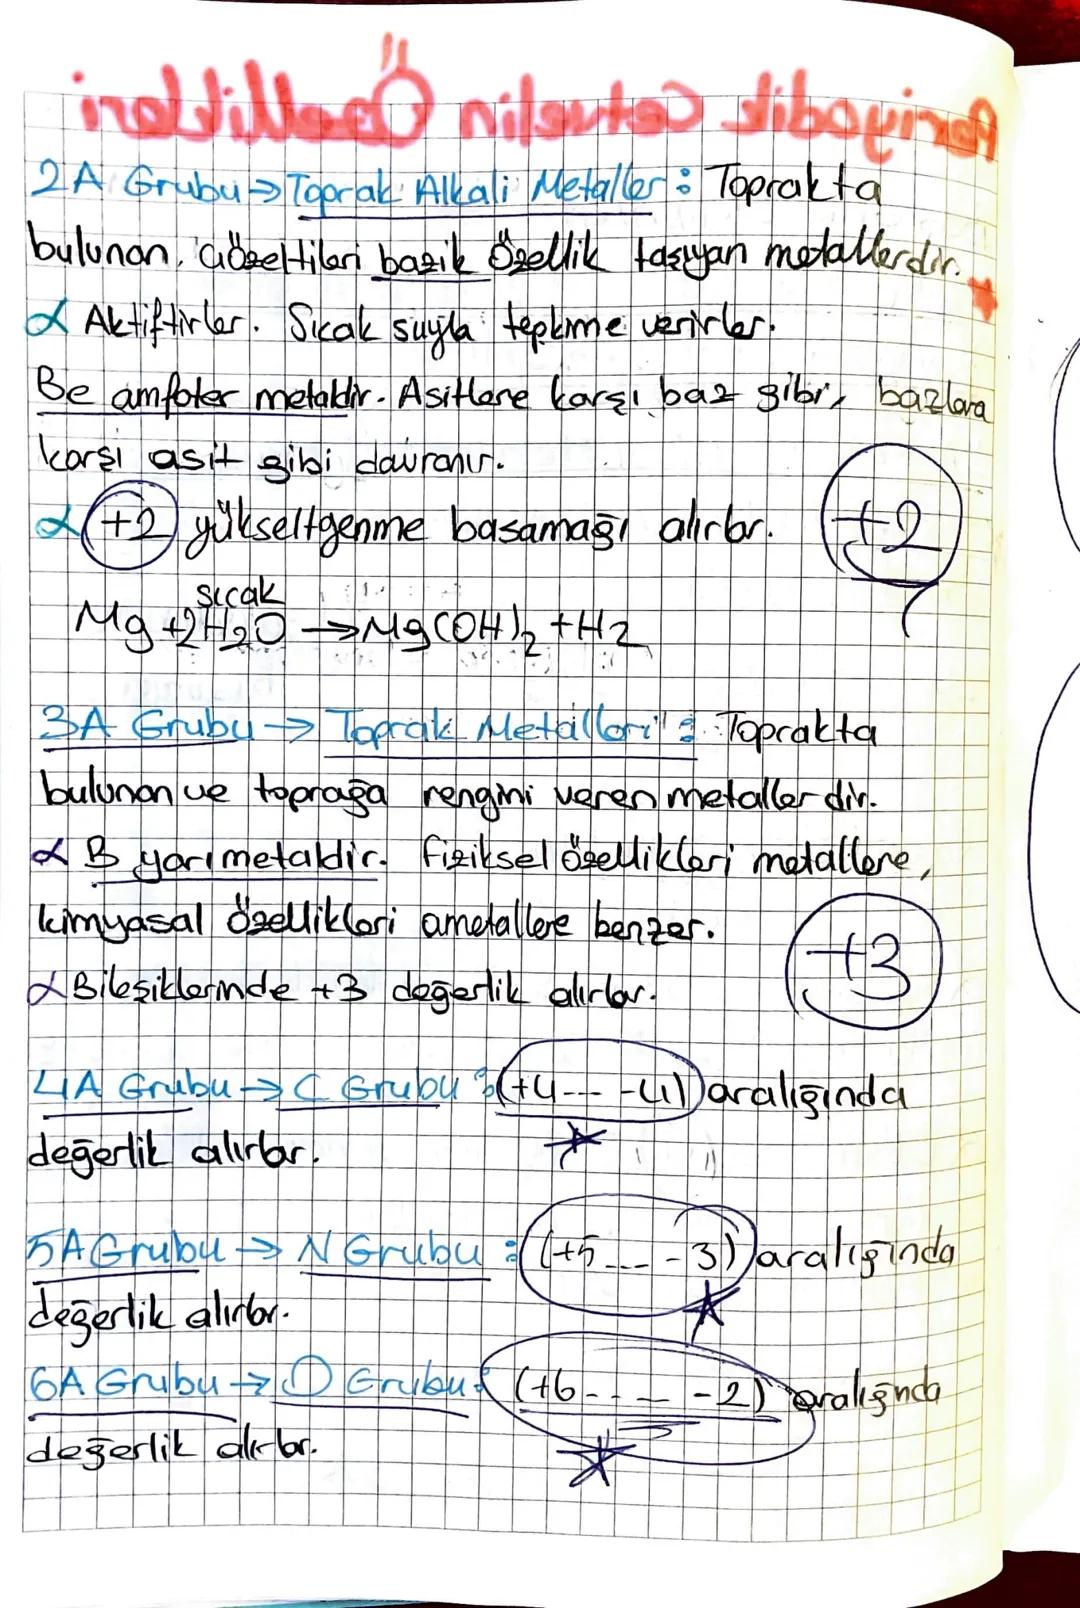 Periyodik Cetvelin Özellikleri
2A Grubu → Toprak Alkali Metaller : Toprakta
bulunan, çözeltileri bazik özellik taşıyan metallerdir.
α Aktiftirler. Sıcak suyla tepkime verirler.
Be amfoter metaldir. Asitlere karşı baz gibi, bazlara
karşı asit gibi davranır.
α +2 yükseltgenme basamağı alırlar. +2
sıcak
Mg + 2H2O → Mg(OH)2 + H2
3A Grubu → Toprak Metalleri : Toprakta
bulunan ve toprağa rengini veren metaller dir.
α B yarı metaldir. fiziksel özellikleri metallere,
kimyasal özellikleri ametallere benzer.
α Bileşiklerinde +3 değerlik alırlar. +3
4A Grubu → C Grubu : (+4--- -4) aralığında
değerlik alırlar.
5A Grubu → N Grubu : (+5--- -3) aralığında
değerlik alırlar.
6A Grubu → O Grubu : (+6---- -2) aralığında
değerlik alırlar.